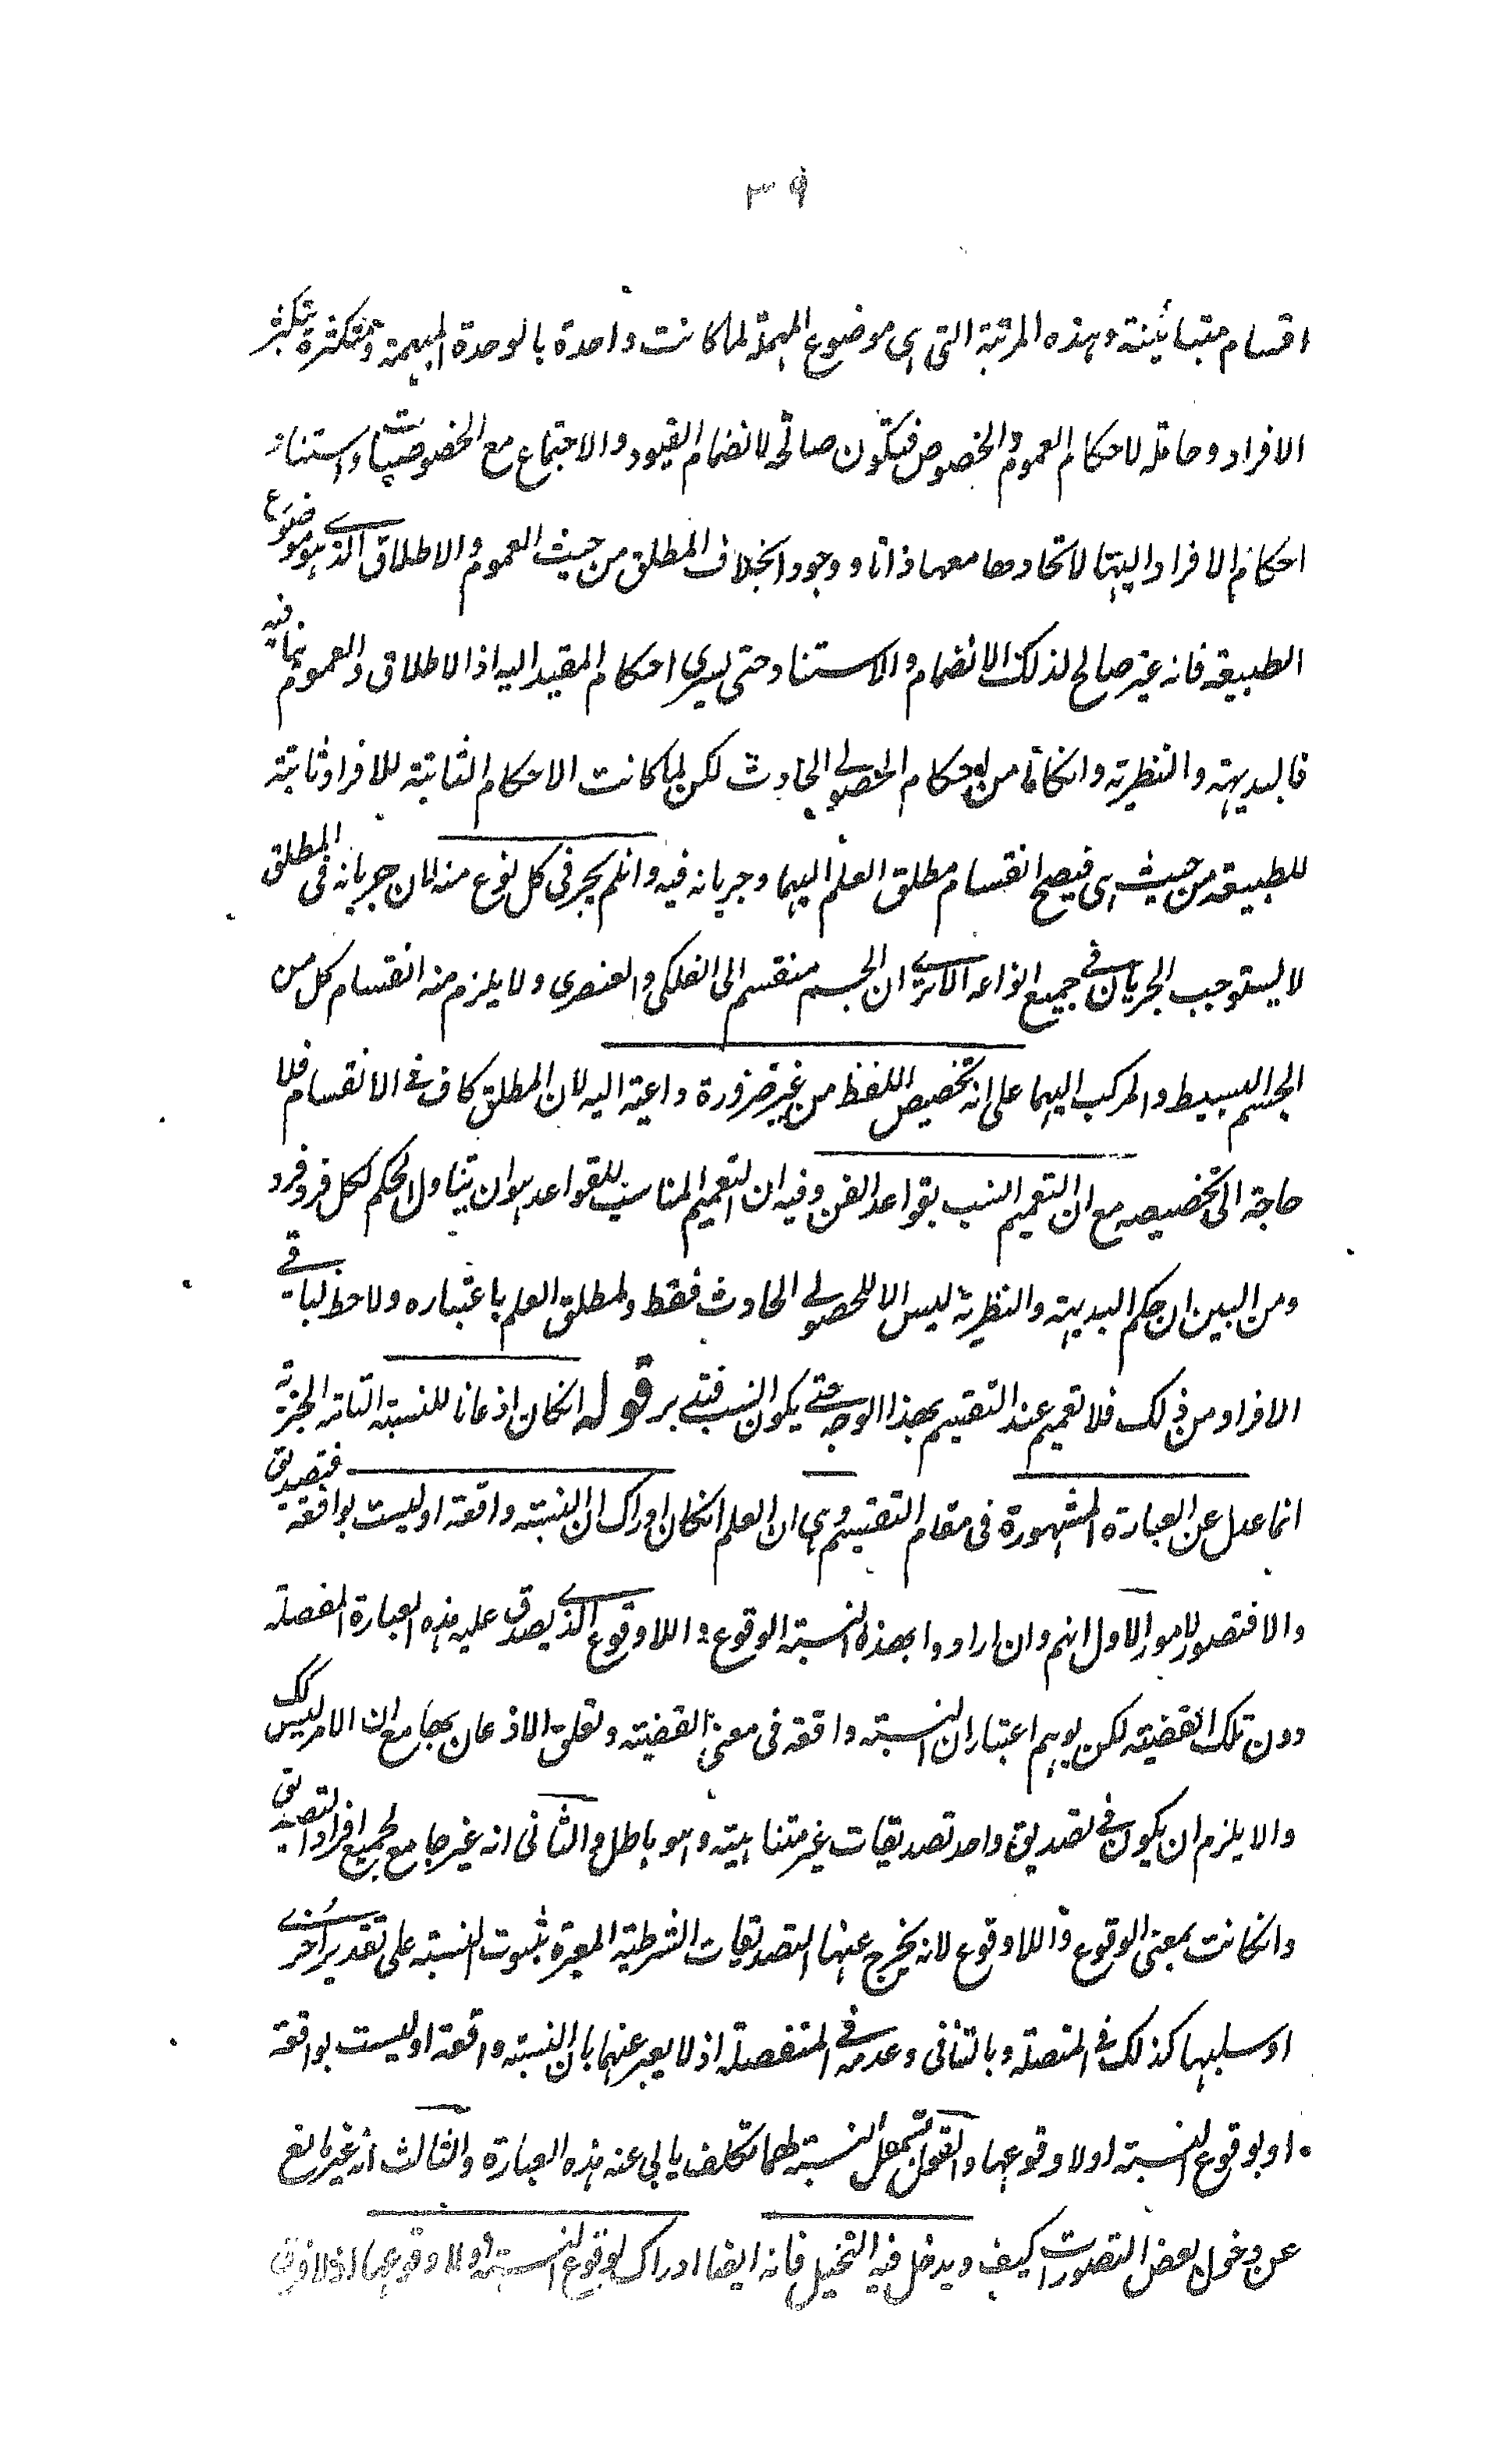 ٣٩
اقسام متبائنة وہذہ المرتبة التی ہی موضوع المہملة لما کانت واحدة بالوحدة المبہمة ومتکثرة بتکثر
الافراد وحاملة لاحکام العموم والخصوص فتکون صالحة لانضمام القیود والاجتماع مع الخصوصیات واستناد
احکام الافراد الیہا لاتحادھا معھا ذاتا ووجودا بخلاف المطلق من حیث العموم والاطلاق الذے ہو موضوع
الطبیعیة فانہ غیر صالح لذلک الانضمام والاستناد حتی یسری احکام المقید الیہ اذ الاطلاق والعموم ینافیہ
فالبدیہیة والنظریة وان کانتا من احکام الحصولے الحادث لکن لما کانت الاحکام الثابتة للافراد ثابتة
للطبیعة من حیث ہی فیصح انقسام مطلق العلم الیہما وجریانہ فیہ وان لم یجر فی کل نوع منہ لان جریانہ فی المطلق
لا یستوجب الجریان فے جمیع انواعہ الا ترے ان الجسم منقسم الی الفلکی والعنصری ولا یلزم منہ انقسام کل من
الجسم البسیط والمرکب الیہما علی انہ تخصیص اللفظ من غیر ضرورة داعیة الیہ لان المطلق کاف فے الانقسام فلا
حاجة الی تخصیصہ مع ان التعمیم انسب بقواعد الفن وفیہ ان التعمیم المناسب للقواعد ہو ان یتناول الحکم لکل فرد فرد
ومن البین ان حکم البدیہیة والنظریة لیس الا للحصولے الحادث فقط ولمطلق العلم باعتبارہ ولا حظ لباقے
الافراد من ذلک فلا تعمیم عند التقسیم بھذا الوجہ حتے یکون انسب فتدبر قولہ ان کان اذعانا للنسبة التامة الخبریة
انما عدل عن العبارة المشہورة فی مقام التقسیم وہی ان العلم ان کان ادراک ان النسبة واقعة او لیست بواقعة فتصدیق
والا فتصور لامور الاول انہم وان ارادوا بھذہ النسبة الوقوع واللاوقوع الذے یصدق علیہ ہذہ العبارة المفصلة
دون تلک القضیة لکن یوہم اعتبار ان النسبة واقعة فی معنی القضیة وتعلق الاذعان بھا مع ان الامر لیس کذلک
والا یلزم ان یکون فی تصدیق واحد تصدیقات غیر متناہیة وہو باطل والثانی انہ غیر جامع لجمیع افراد التصدیق
وان کانت بمعنی الوقوع واللاوقوع لانہ یخرج عنہا التصدیقات الشرطیة المعبرة بثبوت النسبة علی تقدیر اخرے
او سلبہا کذلک فے المتصلة وبالتنافی وعدمہ فے المنفصلة اذ لا یعبر عنہما بان النسبة واقعة او لیست بواقعة
او بوقوع النسبة او لا وقوعہا والقول بشمول النسبة لھما تکلف یابی عنہ ہذہ العبارة والثالث انہ غیر مانع
عن دخول بعض التصورات کیف ویدخل فیہ التخییل فانہ ایضا ادراک لوقوع النسبة او لا وقوعہا اذ لا فرق